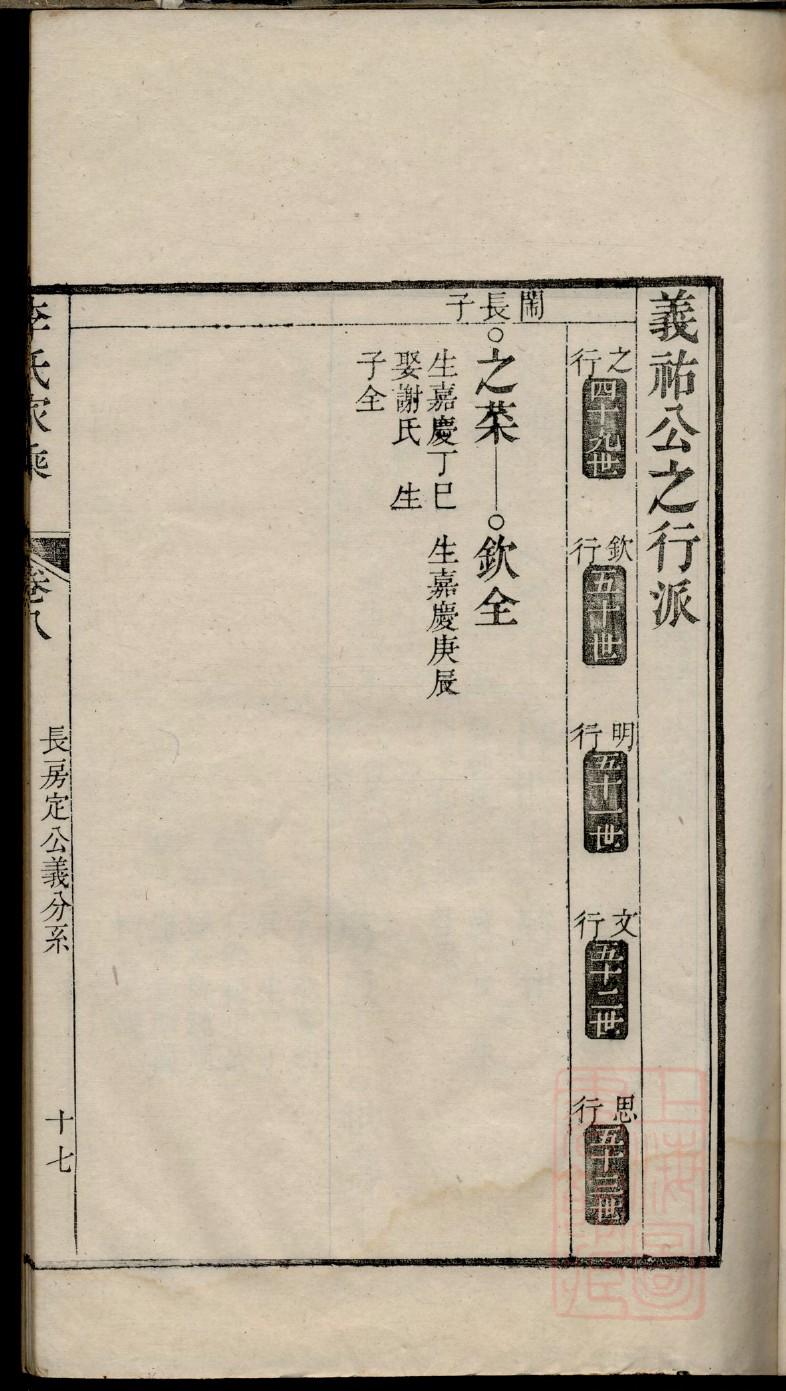 義祐公之行派
之行 四十九世
欽行 五十世
明行 五十一世
文行 五十二世
思行 五十三世
閙長子
之菜 欽全
生嘉慶丁巳
娶謝氏 生
子全
生嘉慶庚辰
李氏家乘
卷八
長房定公義分系
十七